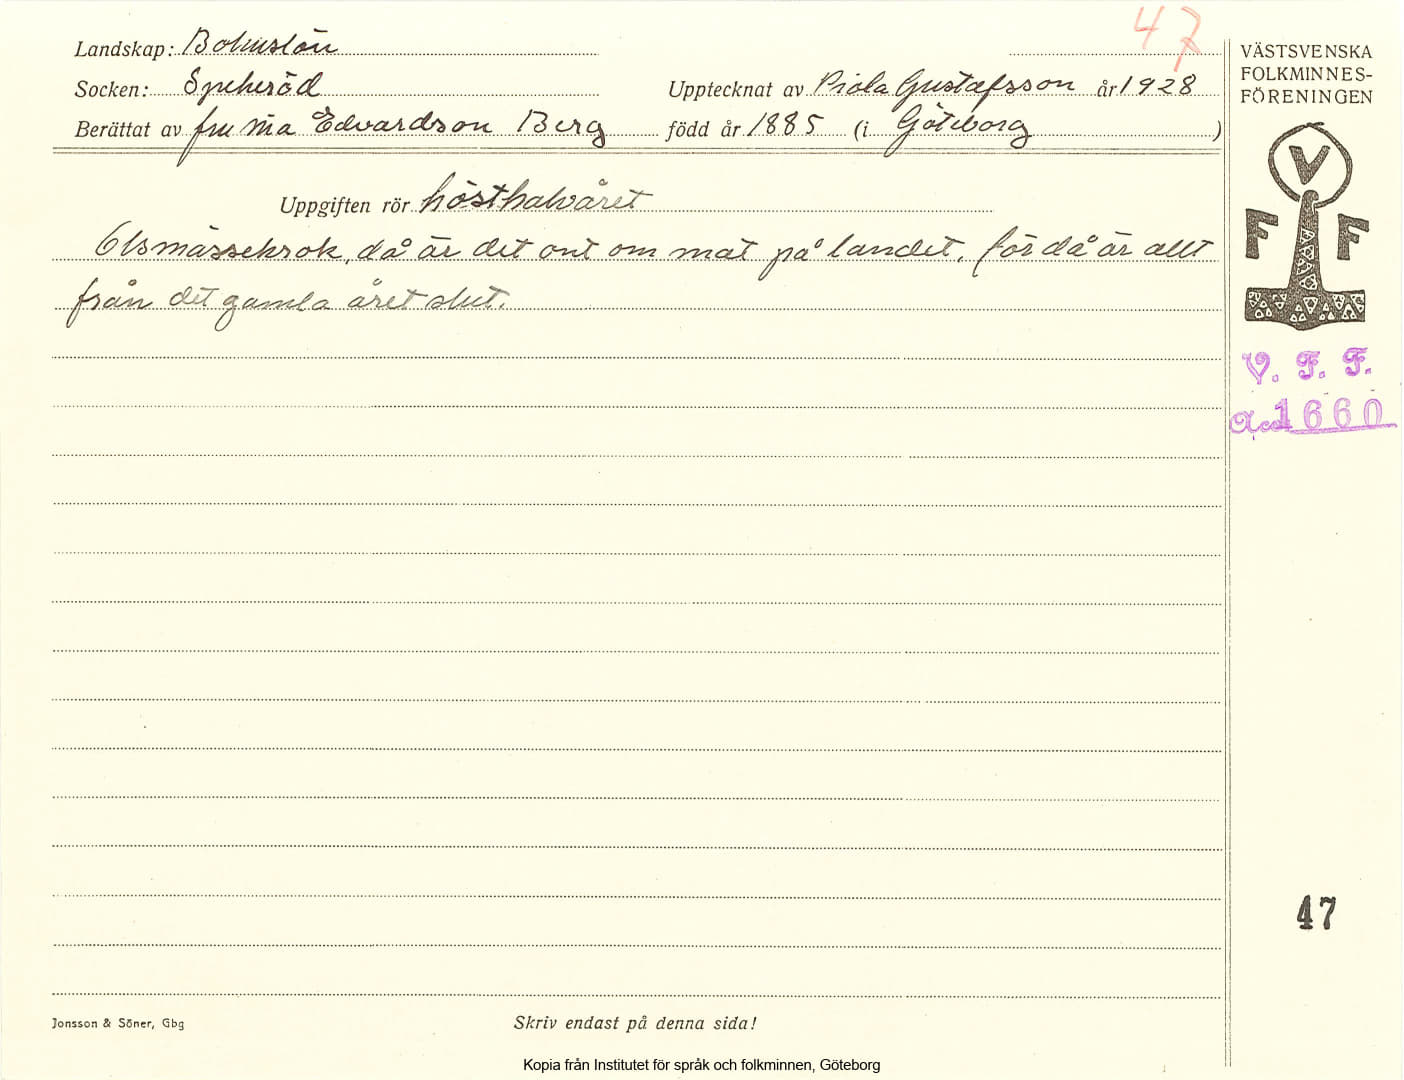 47
Landskap: Bohuslän
Socken: Spekeröd
Upptecknat av Viola Gustafsson år 1928
Berättat av fru Mia Edvardson Berg född år 1885 (i Göteborg )
Uppgiften rör hösthalvåret
Olsmässekrok, då är det ont om mat på landet, för då är allt
från det gamla året slut.
VÄSTSVENSKA
FOLKMINNES-
FÖRENINGEN
V
F F
V. F. F.
Acc 1660
47
Jonsson & Söner, Gbg
Skriv endast på denna sida!
Kopia från Institutet för språk och folkminnen, Göteborg